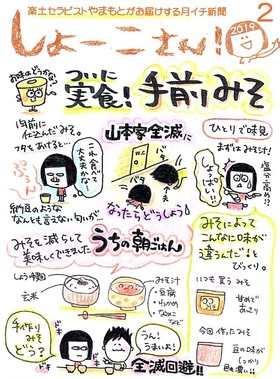 楽土セラピストやまもとがお届けする月イチ新聞
しょーこさん!
2019
2
お味はどうかな
ついに
実食!手前みそ
1ヵ月前に
仕込んだみそ。
フタをあけると…
これ食べて
大丈夫かな…
納豆のような
なんとも言えない匂いが…
山本家全滅に
なったらどうしよう
ひとりで味見
まずはみそ汁!
塩分高め!?
しょっぱい!
みそを減らして
美味しくいただきました
うちの朝ごはん
しょうゆ麹
玄米
みそ汁
・豆腐
・わかめ
・なめこ
などなど
みそによって
こんなに味が
違うんだ!と
びっくり。
いつも買うみそ
甘めで
あっさり
今回作ったみそ
豆の味が
しっかり
手作り
みそ
どう?
ドキ
ドキ
うん!
うまいよ!
全滅回避!!